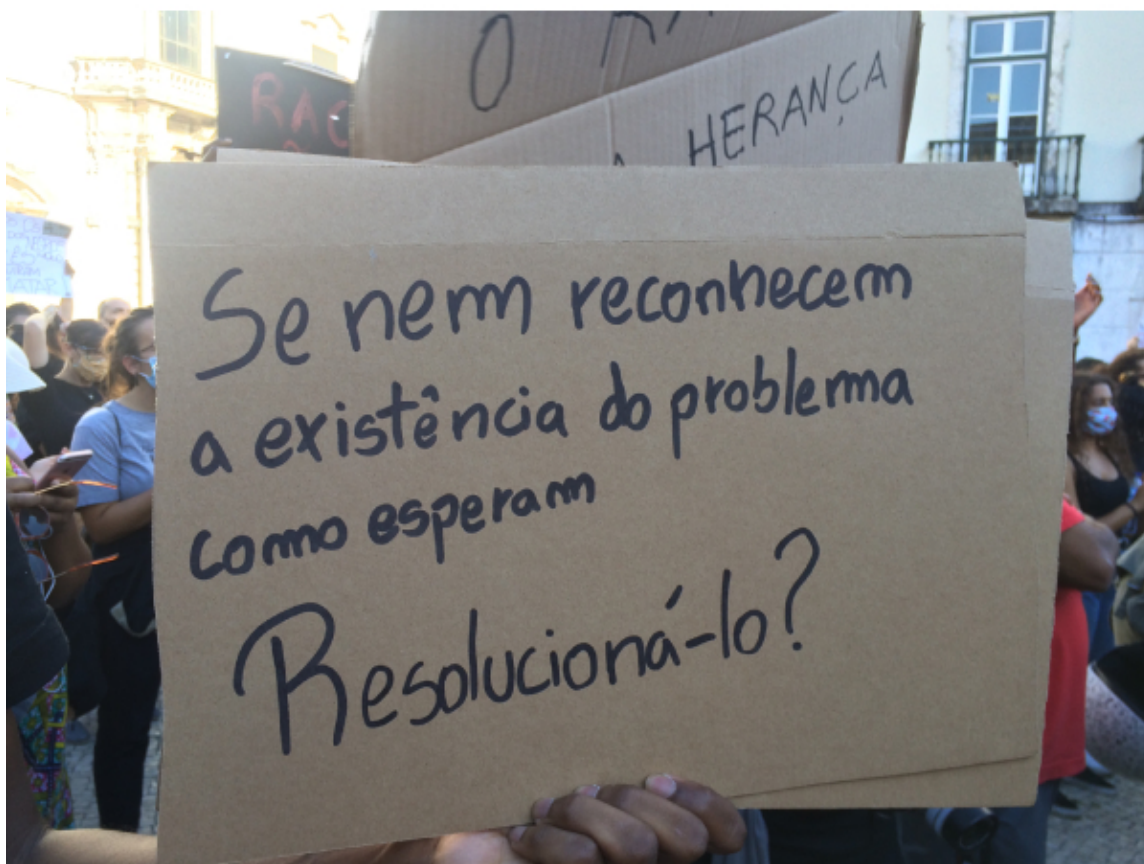 O
HERANÇA
RAC
Se nem reconhecem
a existência do problema
como esperam
Resolucioná-lo?